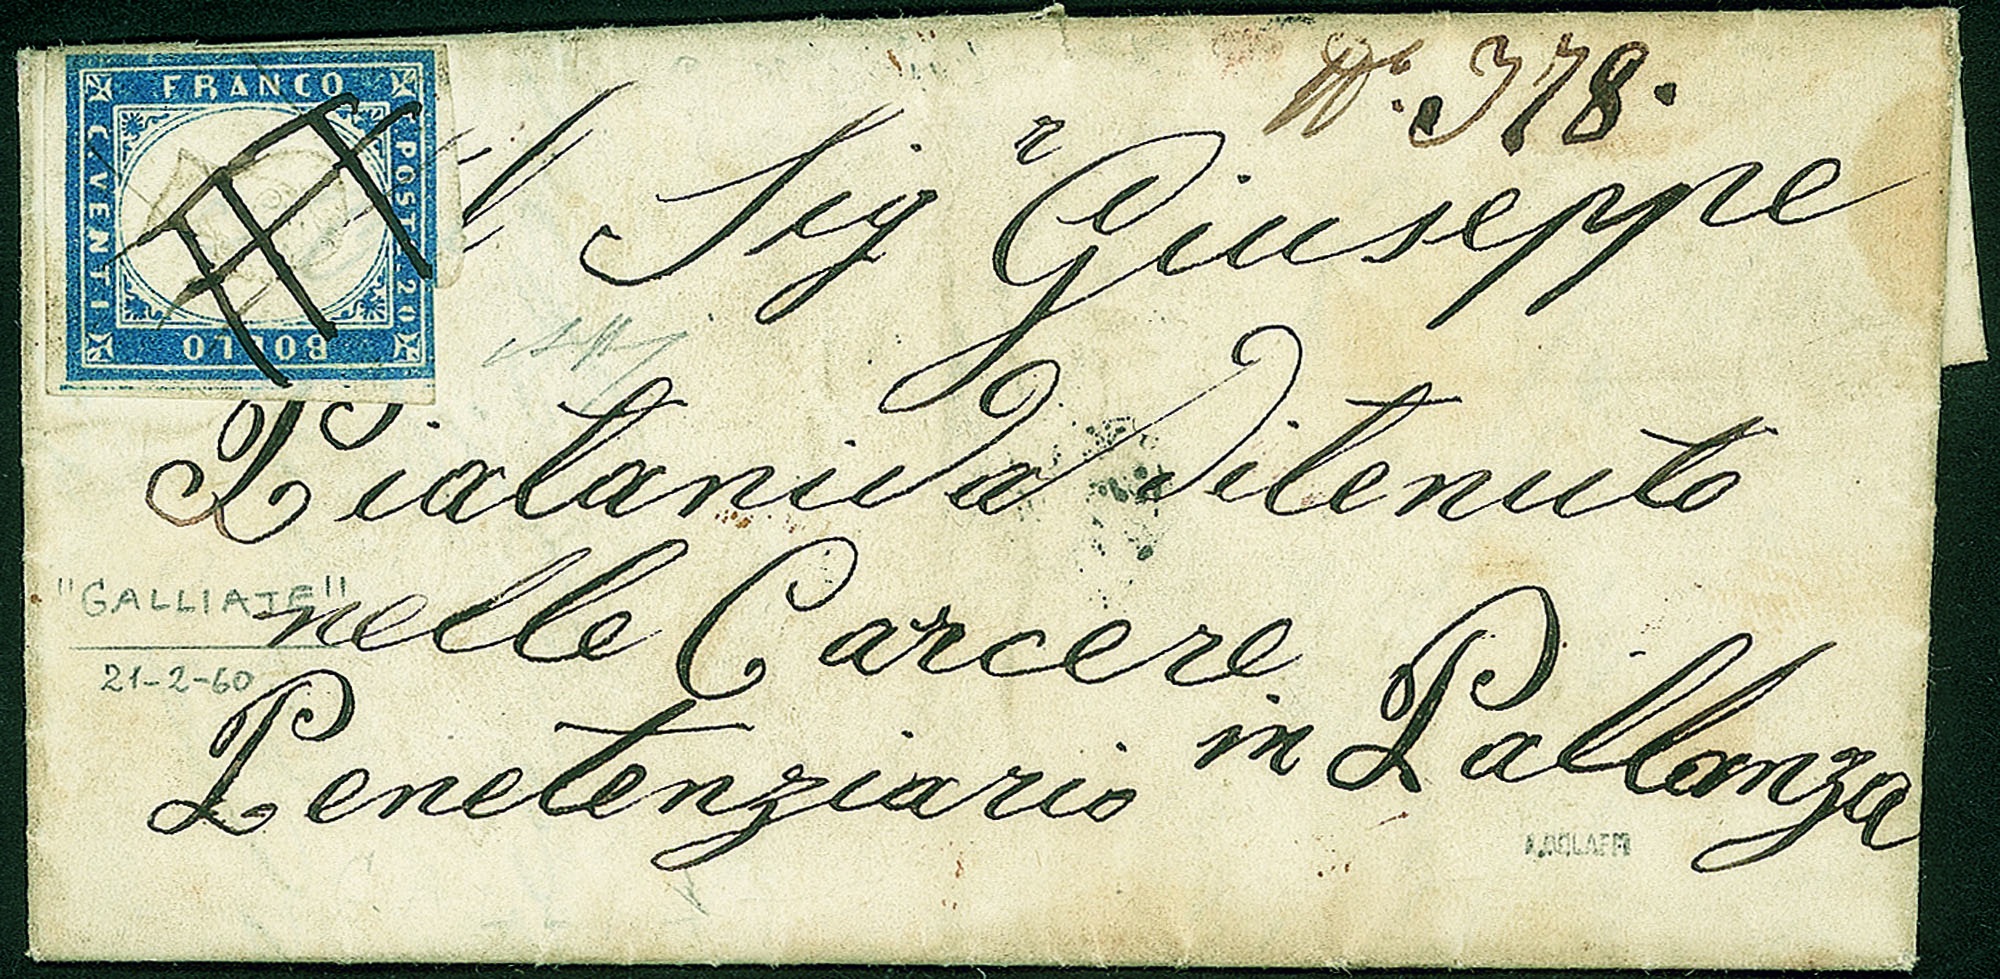 FRANCO
POST. 20
C. VENTI
BOLLO
Nº. 378.
Al Sigr Giuseppe
Piatanida ditenuto
nelle Carcere
Penetenziario in Pallanza
"GALLIATE"
21-2-60
A.BOLAFFI